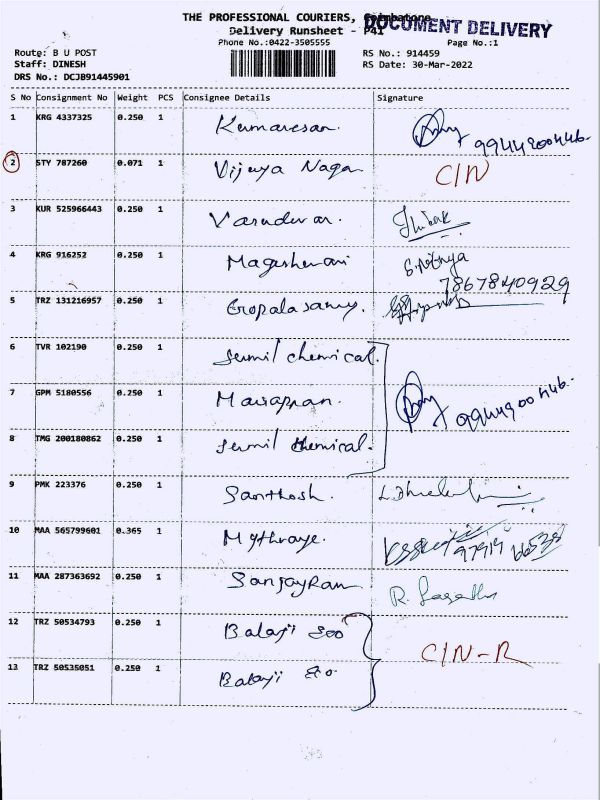 THE PROFESSIONAL COURIERS, Coimbatore
DOCUMENT DELIVERY
Delivery Runsheet - P41
Phone No.:0422-3505555
Page No.:1
Route: B U POST
RS No.: 914459
Staff: DINESH
RS Date: 30-Mar-2022
DRS No.: DCJB91445901
S No Consignment No Weight PCS Consignee Details Signature
1 KRG 4337325 0.250 1 Kumaresan. 9944200446.
2 STY 787260 0.071 1 Vijaya Nagar C/N
3 KUR 525966443 0.250 1 Vasudevan.
4 KRG 916252 0.250 1 Mageshwari S. Nithya
7867840929
5 TRZ 131216957 0.250 1 Gopalasamy.
6 TVR 102190 0.250 1 chemical.
7 GPM 5180556 0.250 1
8 TMG 200180862 0.250 1 chemical.
9 PMK 223376 0.250 1 Santhosh.
10 MAA 565799601 0.365 1 Mythraye.
11 MAA 287363692 0.250 1 SanjayRam R.
12 TRZ 50534793 0.250 1 Balaji
C/N-R
13 TRZ 50535051 0.250 1 Balaji